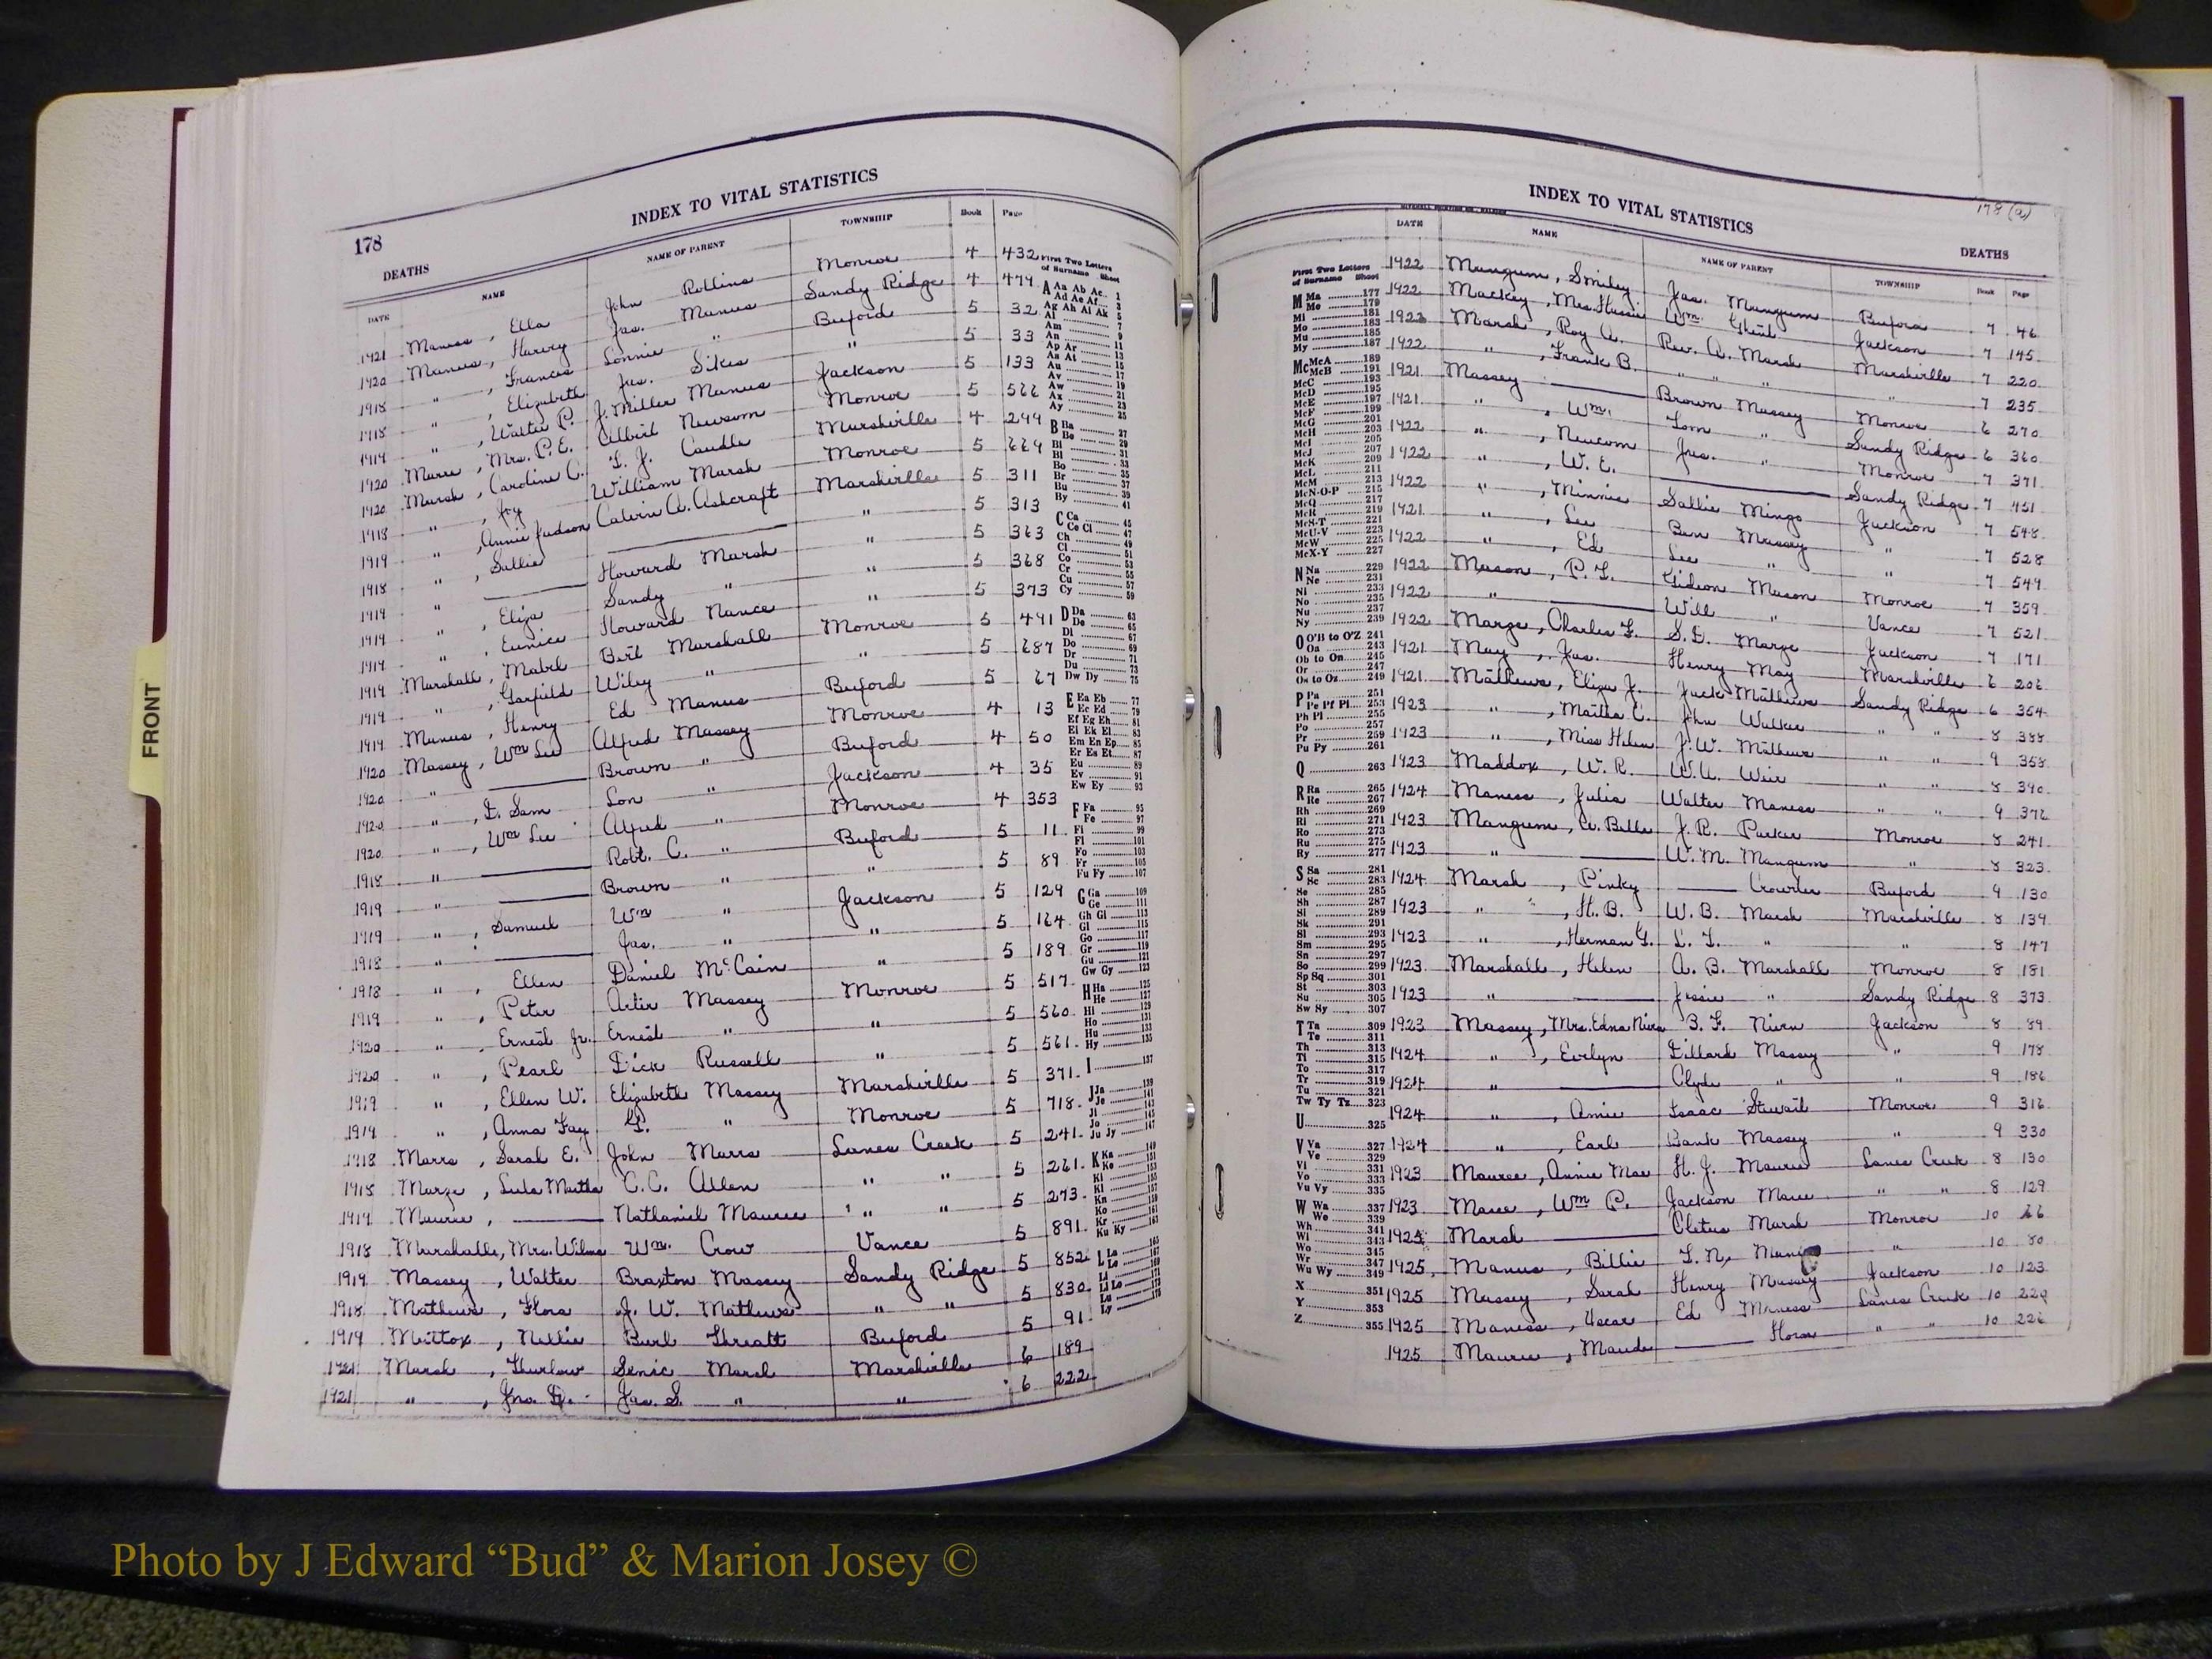 178
INDEX TO VITAL STATISTICS
DEATHS
DATE NAME NAME OF PARENT TOWNSHIP Book Page
1921 Maness, Ella John Rollins Monroe 4 432
1920 Manus, Harvey Jas. Manus Sandy Ridge 4 474
1918 " , Frances Lonnie " Buford 5 32
1918 " , Elizabeth Jas. Sikes " 5 33
1919 " , Walter P. J. Miller Manus Jackson 5 133
1920 Mrs. P.E. Albert Newsom Monroe 5 566
1920 Marsh, Caroline C. T. J. Caudle Marshville 4 299
1918 " , Ivy William Marsh Monroe 5 669
1919 " , Annie Judson Calvin A. Ashcraft Marshville 5 311
1918 " , Sallie —— " 5 313
1919 " —— Howard Marsh " 5 363
1919 " , Eliza Sandy " " 5 368
1919 " , Eunice Howard Nance " 5 373
1919 Marshall, Mabel Bert Marshall Monroe 5 491
1919 " , Garfield Wiley " " 5 687
1919 Manus, Henry Ed Manus Buford 5 67
1920 Massey, Wm Lee Alfred Massey Monroe 4 13
1920 " —— Brown " Buford 4 50
1920 " , D. Sam Lon " Jackson 4 35
1920 " , Wm Lee Alfred " Monroe 4 353
1918 " —— Robt. C. " Buford 5 11
1919 " —— Brown " " 5 89
1919 " , Samuel Wm " Jackson 5 129
1918 " —— Jas. " " 5 164
1918 " , Ellen Daniel McCain " 5 189
1919 " , Peter Artie Massey Monroe 5 517
1920 " , Ernest Jr. Ernest " " 5 560
1920 " , Pearl Dick Russell " 5 561
1919 " , Ellen W. Elizabeth Massey Marshville 5 371
1919 " , Anna Fay " Monroe 5 718
1918 Marrs, Sarah E. John Marrs Lanes Creek 5 241
1918 Marze, Lula Martha C.C. Allen " " 5 261
1919 Maurer, —— Nathaniel Maurer " " 5 273
1918 Marshalle, Mrs. Wilma Wm. Crow Vance 5 891
1919 Massey, Walter Braxton Massey Sandy Ridge 5 852
1918 Mathews, Flora J. W. Mathews " " 5 830
1919 Mattox, Nellie Burl Threatt Buford 5 91
1921 Marsh, Thurlow Senic Marsh Marshville 6 189
1921 " , Jno. D. Jas. S. " " 6 222
First Two Letters
of Surname Sheet
A Aa Ab Ac 1
Ad Ae Af 3
Ag Ah Ai Ak 5
Al 7
Am 9
An 11
Ap Ar 13
As At 15
Au 17
Av 19
Aw 21
Ax 23
Ay 25
B Ba 27
Be 29
Bi 31
Bl 33
Bo 35
Br 37
Bu 39
By 41
C Ca 45
Ce Ci 47
Ch 49
Cl 51
Co 53
Cr 55
Cu 57
Cy 59
D Da 63
De 65
Di 67
Do 69
Dr 71
Du 73
Dw Dy 75
E Ea Eb 77
Ec Ed 79
Ef Eg Eh 81
Ei Ek El 83
Em En Ep 85
Er Es Et 87
Eu 89
Ev 91
Ew Ey 93
F Fa 95
Fe 97
Fi 99
Fl 101
Fo 103
Fr 105
Fu Fy 107
G Ga 109
Ge 111
Gh Gi 113
Gl 115
Go 117
Gr 119
Gu 121
Gw Gy 123
H Ha 125
He 127
Hi 129
Ho 131
Hu 133
Hy 135
I 137
J Ja 139
Je 141
Ji 143
Jo 145
Ju Jy 147
K Ka 149
Ke 151
Ki 153
Kl 155
Kn 157
Ko 159
Kr 161
Ku Ky 163
L La 165
Le 167
Li 169
Lo 171
Lu
Ly
178 (a)
INDEX TO VITAL STATISTICS
DEATHS
DATE NAME NAME OF PARENT TOWNSHIP Book Page
First Two Letters
of Surname Sheet
M Ma 177
Me 179
Mi 181
Mo 183
Mu 185
My 187
Mc McA 189
McB 191
McC 193
McD 195
McE 197
McF 199
McG 201
McH 203
McI 205
McJ 207
McK 209
McL 211
McM 213
McN-O-P 215
McQ 217
McR 219
McS-T 221
McU-V 223
McW 225
McX-Y 227
N Na 229
Ne 231
Ni 233
No 235
Nu 237
Ny 239
O O'B to O'Z 241
Oa 243
Ob to On 245
Or 247
Os to Oz 249
P Pa 251
Pe Pf Pi 253
Ph Pl 255
Po 257
Pr 259
Pu Py 261
Q 263
R Ra 265
Re 267
Rh 269
Ri 271
Ro 273
Ru 275
Ry 277
S Sa 281
Sc 283
Se 285
Sh 287
Si 289
Sk 291
Sl 293
Sm 295
Sn 297
So 299
Sp Sq 301
St 303
Su 305
Sw Sy 307
T Ta 309
Te 311
Th 313
Ti 315
To 317
Tr 319
Tu 321
Tw Ty Tz 323
U 325
V Va 327
Ve 329
Vi 331
Vo 333
Vu Vy 335
W Wa 337
We 339
Wh 341
Wi 343
Wo 345
Wr 347
Wu Wy 349
X 351
Y 353
Z 355
1922 Mangum, Smiley Jas. Mangum Buford 7 46
1922 Mackey, Mrs. Hassie Wm. Ghent Jackson 7 145
1922 Marsh, Roy A. Rev. A. Marsh Marshville 7 220
1922 " , Frank B. " " " " 7 235
1921 Massey —— Brown Massey Monroe 6 270
1921 " , Wm. Tom " Sandy Ridge 6 360
1922 " , Newcom Jas. " Monroe 7 371
1922 " , W. E. —— Sandy Ridge 7 451
1922 " , Minnie Sallie Mingo Jackson 7 548
1921 " , Lee Ben Massey " 7 528
1922 " , Ed Lee " " 7 549
1922 Mason, P. L. Gideon Mason Monroe 7 359
1922 " —— Will " Vance 7 521
1922 Marze, Charles F. S. D. Marze Jackson 7 171
1921 May, Jas. Henry May Marshville 6 206
1921 Mathews, Eliza J. Jack Mathews Sandy Ridge 6 354
1923 " , Martha C. Jhn Walker " " 8 388
1923 " , Miss Helen J. W. Mathews " " 9 358
1923 Maddox, W. R. W. A. Weir " " 8 390
1924 Maness, Julia Walter Maness " " 9 376
1923 Mangum, A. Belle J. R. Parker Monroe 8 241
1923 " —— W. M. Mangum " 8 323
1924 Marsh, Pinky —— Crowder Buford 9 130
1923 " , H. B. W. B. Marsh Marshville 8 139
1923 " , Herman G. L. T. " " 8 147
1923 Marshall, Helen A. B. Marshall Monroe 8 181
1923 " —— Jessie " Sandy Ridge 8 373
1923 Massey, Mrs. Edna Niven B. F. Niven Jackson 8 89
1924 " , Evelyn Dillard Massey " 9 178
1924 " —— Clyde " " 9 186
1924 " , Amie Isaac Stewart Monroe 9 316
1924 " , Earl Bank Massey " 9 330
1923 Maurer, Annie Mae H. J. Maurer Lanes Creek 8 130
1923 Maree, Wm P. Jackson Maree " " 8 129
1925 Marsh —— Cletus Marsh Monroe 10 66
1925 Manus, Billie T. N. " 10 80
1925 Massey, Sarah Henry Massey Jackson 10 123
1925 Maness, Oscar Ed Maness Lanes Creek 10 229
1925 Maurer, Maude —— Horn " " 10 226
FRONT
Photo by J Edward “Bud” & Marion Josey ©